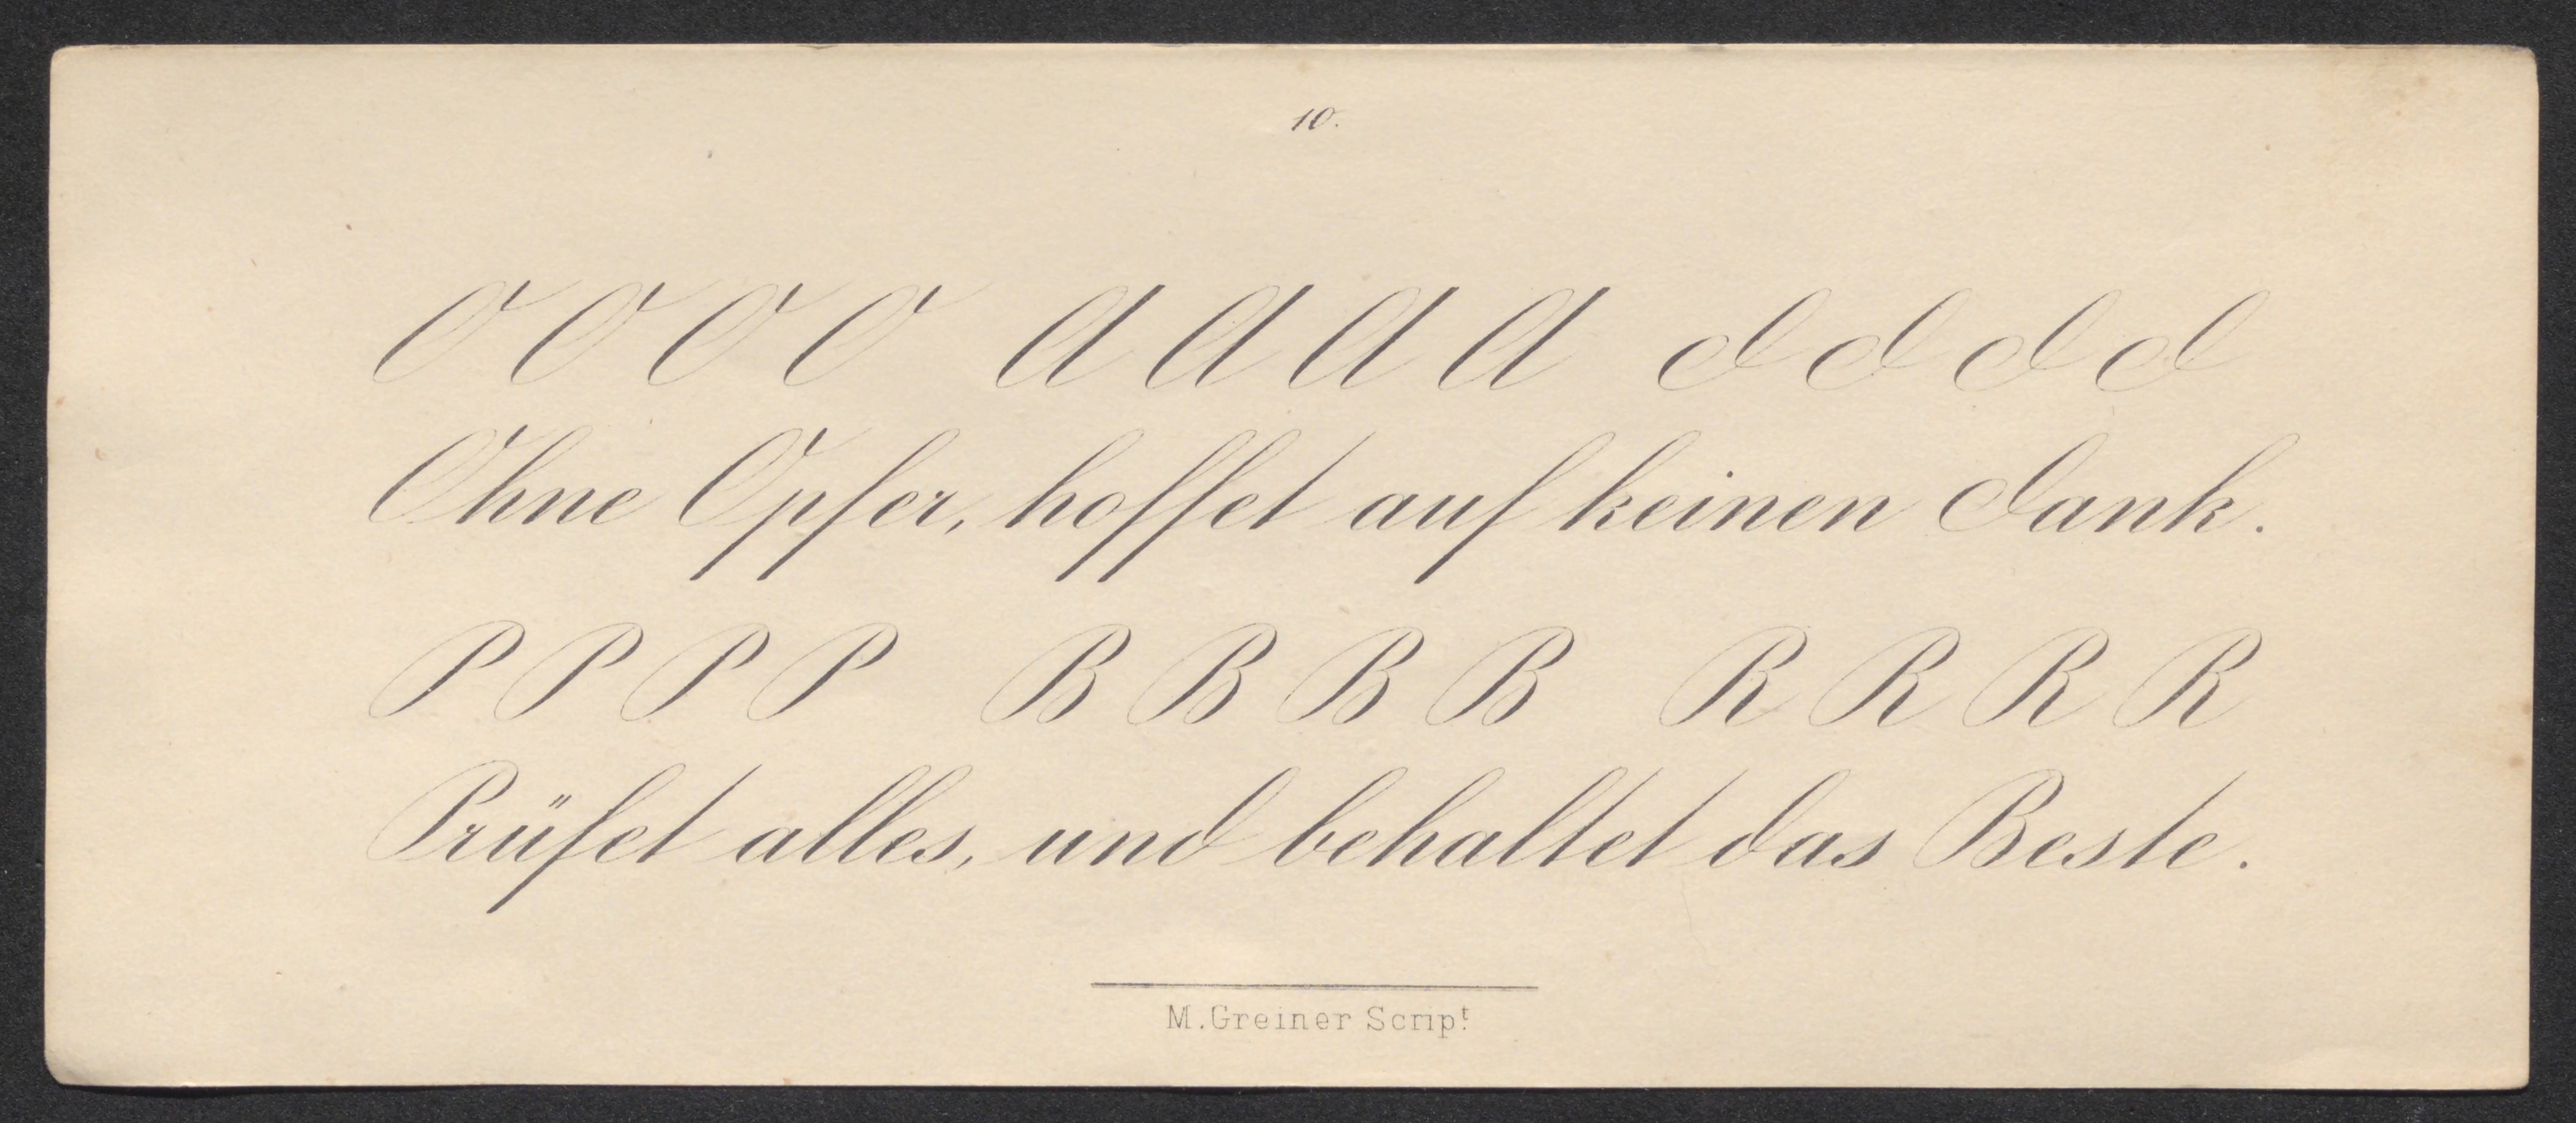 10.
O O O O A A A A d d d d
Ohne Opfer, hoffet auf keinen dank.
P P P P B B B B R R R R
Prüfet alles, und behaltet das Beste.
M. Greiner Scrip.t